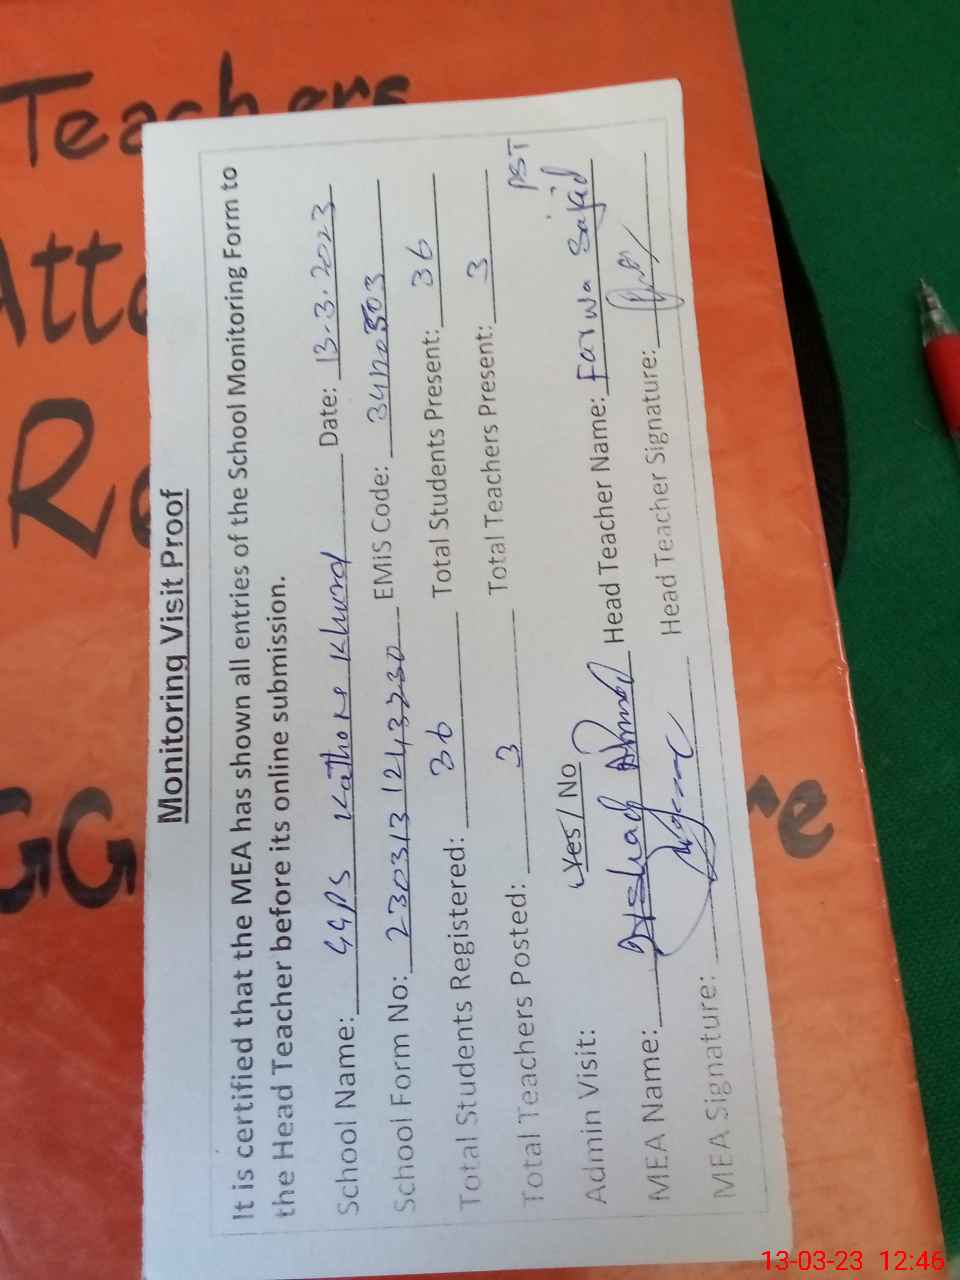 Teachers
Monitoring Visit Proof
It is certified that the MEA has shown all entries of the School Monitoring Form to
the Head Teacher before its online submission.
School Name: GGPS Kathore Khurd Date: 13-3-2023
School Form No: EMIS Code:
Total Students Registered: 36 Total Students Present: 36
Total Teachers Posted: 3 Total Teachers Present: 3
Admin Visit: Yes / No PST
MEA Name: Ahmad Head Teacher Name: Farwa Sajid
MEA Signature: Head Teacher Signature:
13-03-23 12:46